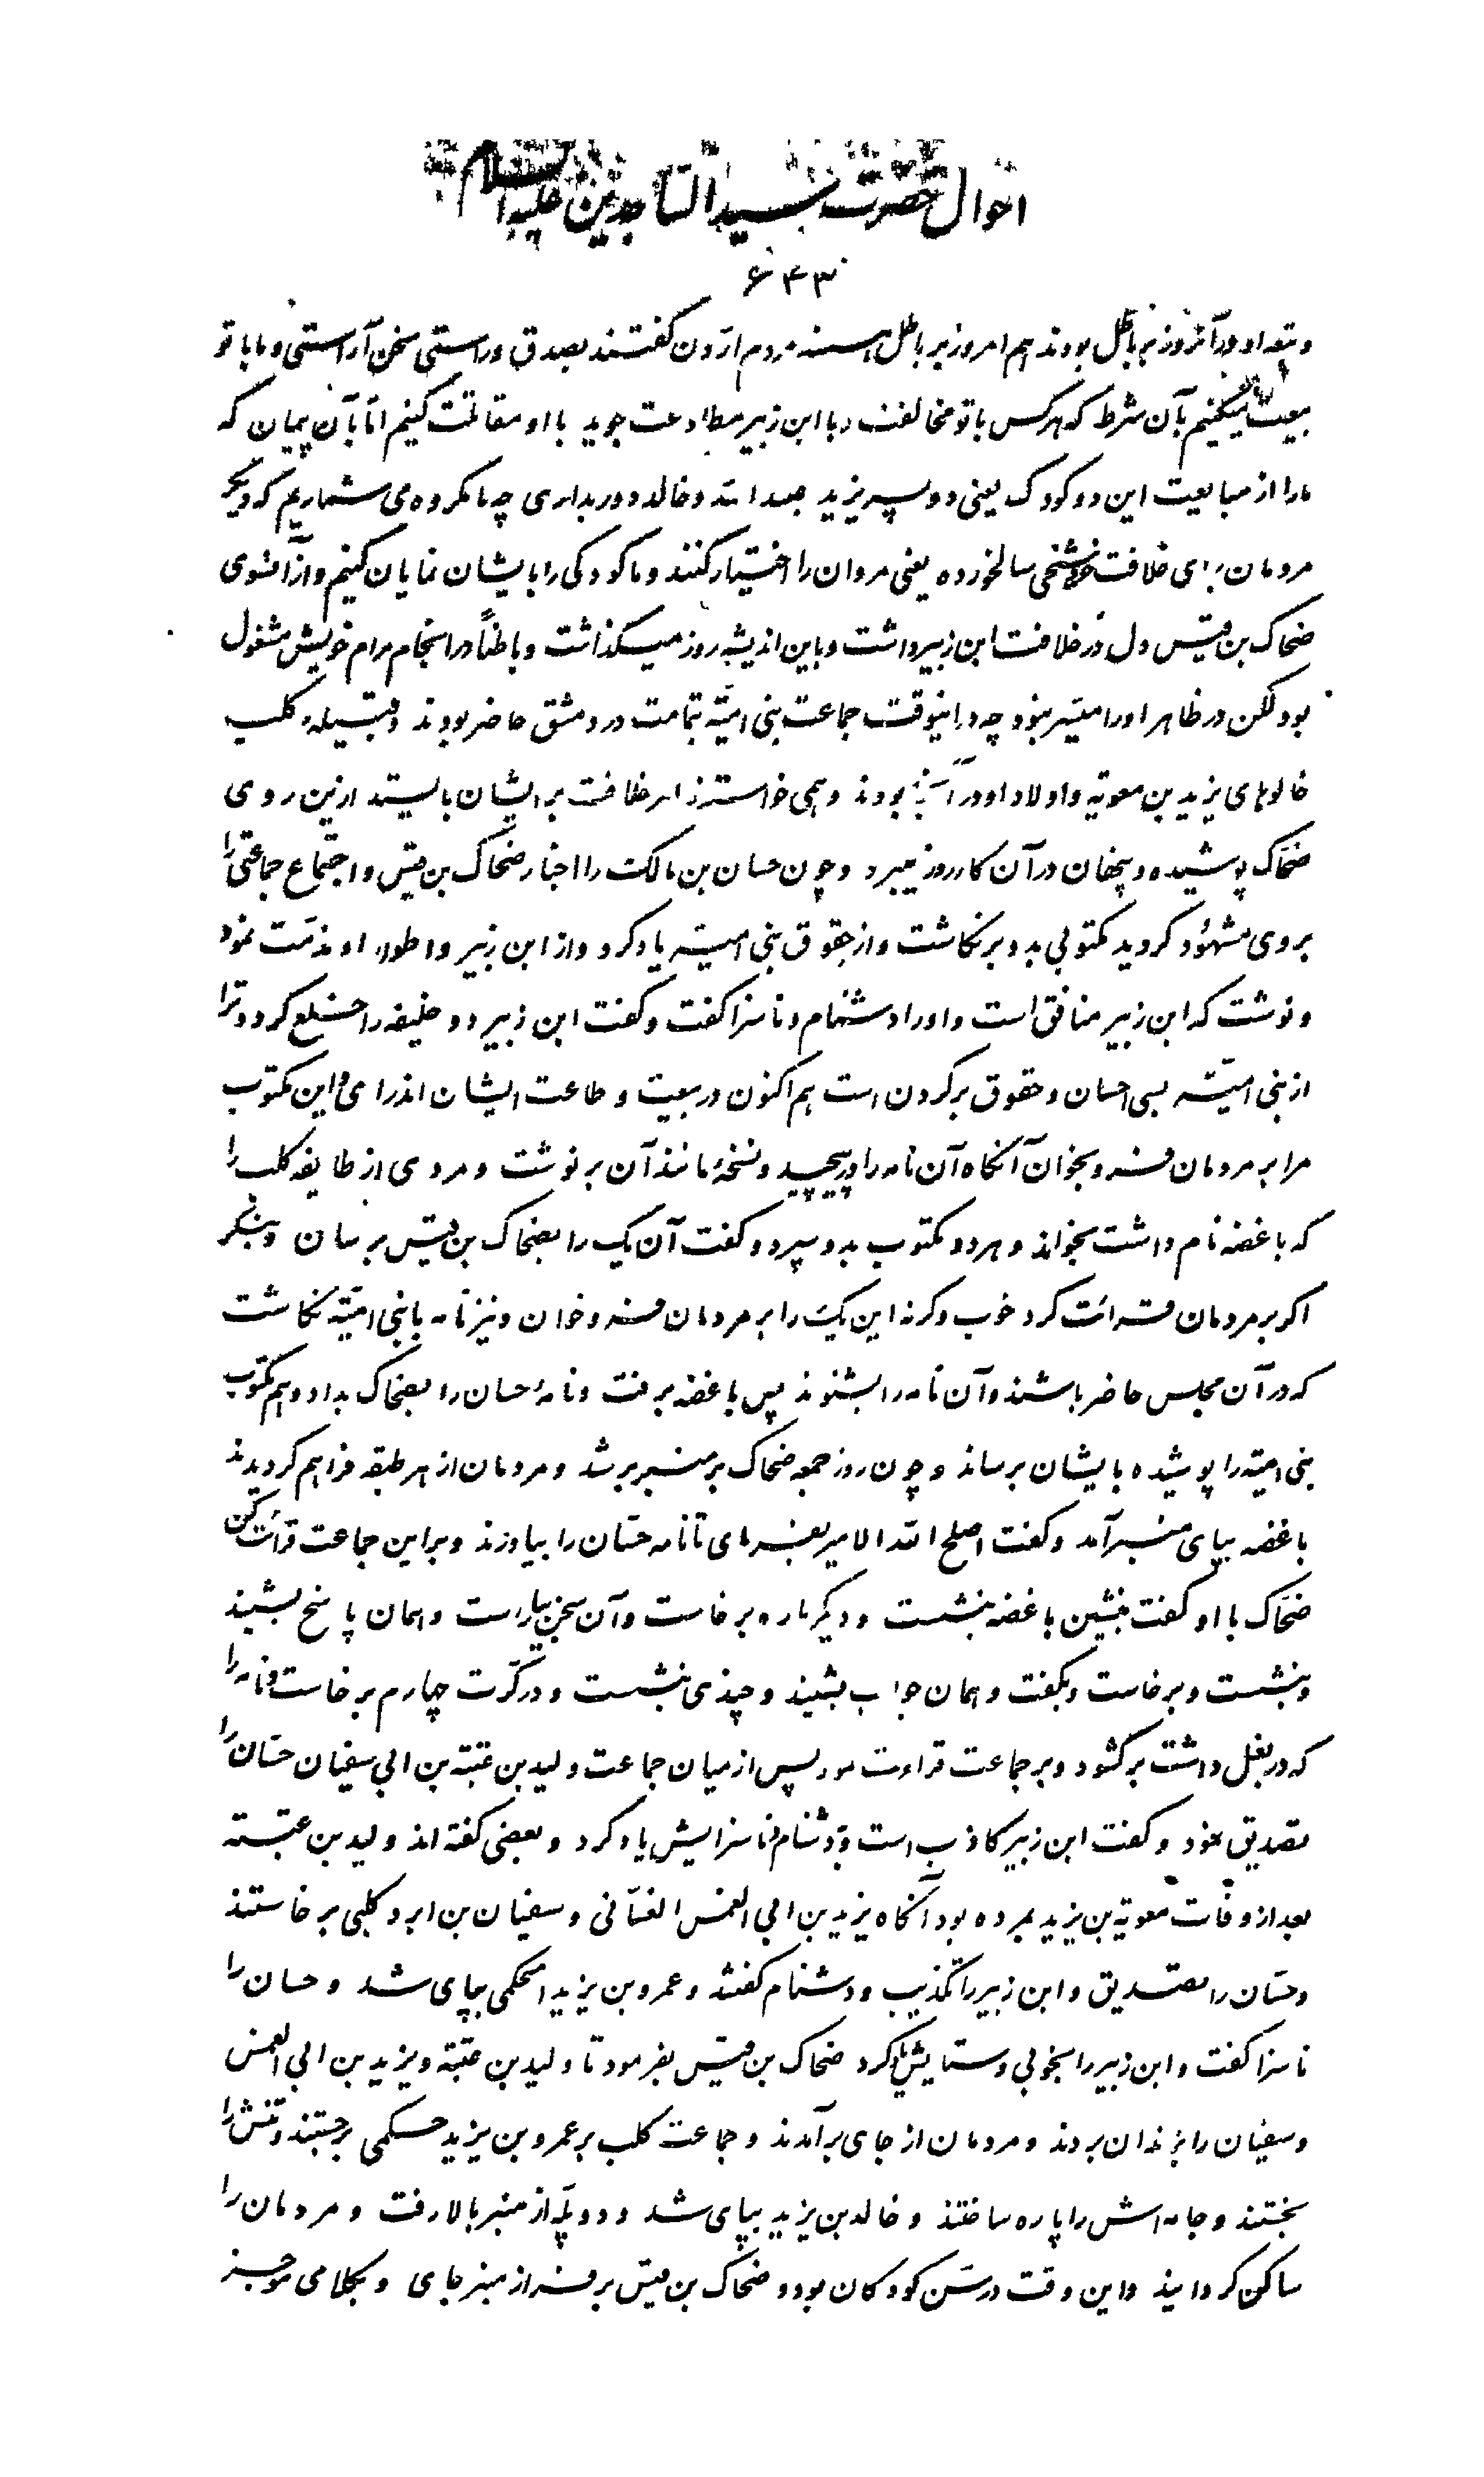 احوال حضرت سید الساجدین علیه السلام
۶۴۳
و تبعه او در آنروز بر باطل بودند هم امروز بر باطل هستند مردم اردن گفتند بصدق و راستی سخن آراستی و ما با تو
بیعت میکنیم بآن شرط که هر کس با تو مخالفت و با ابن زبیر مطاوعت جوید با او مقاتلت کنیم اما بآن پیمان که
ما را از مبایعت این دو کودک یعنی دو پسر یزید عبد الله و خالد دور بداری چه ما مکروه می شماریم که دیگر
مردمان برای خلافت خود شیخی سالخورده یعنی مروان را اختیار کنند و ما کودکی را بایشان نمایان کنیم و از آنسوی
ضحاک بن قیس دل در خلافت ابن زبیر داشت و باین اندیشه روز میگذاشت و باطناً در انجام مرام خویش مشغول
بود لکن در ظاهر او را میسر نبود چه در اینوقت جماعت بنی امیّه بتمامت در دمشق حاضر بودند و قبیله کلب
خالوهای یزید بن معویه و اولاد او در آنجا بودند و همی خواستند امر خلافت بر ایشان بایستد ازین روی
ضحاک پوشیده و پنهان در آن کار روز میبرد و چون حسان بن مالک را اخبار ضحاک بن قیس و اجتماع جماعتی را
بروی مشهود گردید مکتوبی بدو بر نگاشت و از حقوق بنی امیه یاد کرد و از ابن زبیر و اطوار او مذمت نمود
و نوشت که ابن زبیر منافق است و او را دشنام و ناسزا گفت و گفت ابن زبیر دو خلیفه را خلع کرد و ترا
از بنی امیّه بسی احسان و حقوق بر گردن است هم اکنون در بیعت و طاعت ایشان اندر آی و این مکتوب
مرا بر مردمان فرو بخوان آنگاه آن نامه را در پیچید و نسخۀ مانند آن بر نوشت و مردی از طایفه کلب را
که باغضه نام داشت بخواند و هر دو مکتوب بدو سپرد و گفت آن یک را بضحاک بن قیس برسان و بنگر
اگر بر مردمان قرائت کرد خوب و گرنه این یک را بر مردمان فرو خوان و نیز نامه با بنی امیّه نگاشت
که در آن مجلس حاضر باشند و آن نامه را بشنوند پس باغضه برفت و نامۀ حسان را بضحاک بداد و هم مکتوب
بنی امیّه را پوشیده بایشان برساند و چون روز جمعه ضحاک بر منبر بر شد و مردمان از هر طبقه فراهم گردیدند
باغضه بپای منبر آمد و گفت اصلح الله الامیر بفرمای تا نامه حسّان را بیاورند و بر این جماعت قرائت کن
ضحّاک با او گفت بنشین باغضه بنشست و دیگر باره بر خاست و آن سخن بیاراست و همان پاسخ بشنید
و بنشست و بر خاست و بگفت و همان جواب بشنید و چیزی بنشست و در کرّت چهارم بر خاست و نامه را
که در بغل داشت بر گشود و بر جماعت قراءت نمود پس از میان جماعت ولید بن عتبة بن ابی سفیان حسّان را
تصدیق نمود و گفت ابن زبیر کاذب است و بدشنام و ناسزایش یاد کرد و بعضی گفته اند ولید بن عتبه
بعد از وفات معویة بن یزید بمرده بود آنگاه یزید بن ابی الغمس الغسّانی و سفیان بن ابرد کلبی بر خاستند
و حسّان را تصدیق و ابن زبیر را تکذیب و دشنام گفتند و عمرو بن یزید الحکمی بپای شد و حسان را
ناسزا گفت و ابن زبیر را بخوبی و ستایش یاد کرد ضحاک بن قیس بفرمود تا ولید بن عتبة و یزید بن ابی الغمس
و سفیان را بزندان بردند و مردمان از جای بر آمدند و جماعت کلب بر عمرو بن یزید حکمی بر جستند و تنش را
بخستند و جامه اش را پاره ساختند و خالد بن یزید بپای شد و دو پلّه از منبر بالا رفت و مردمان را
ساکن گردانید و این وقت در سن کودکان بود و ضحاک بن قیس بر فراز منبر جای و بکلامی موجز